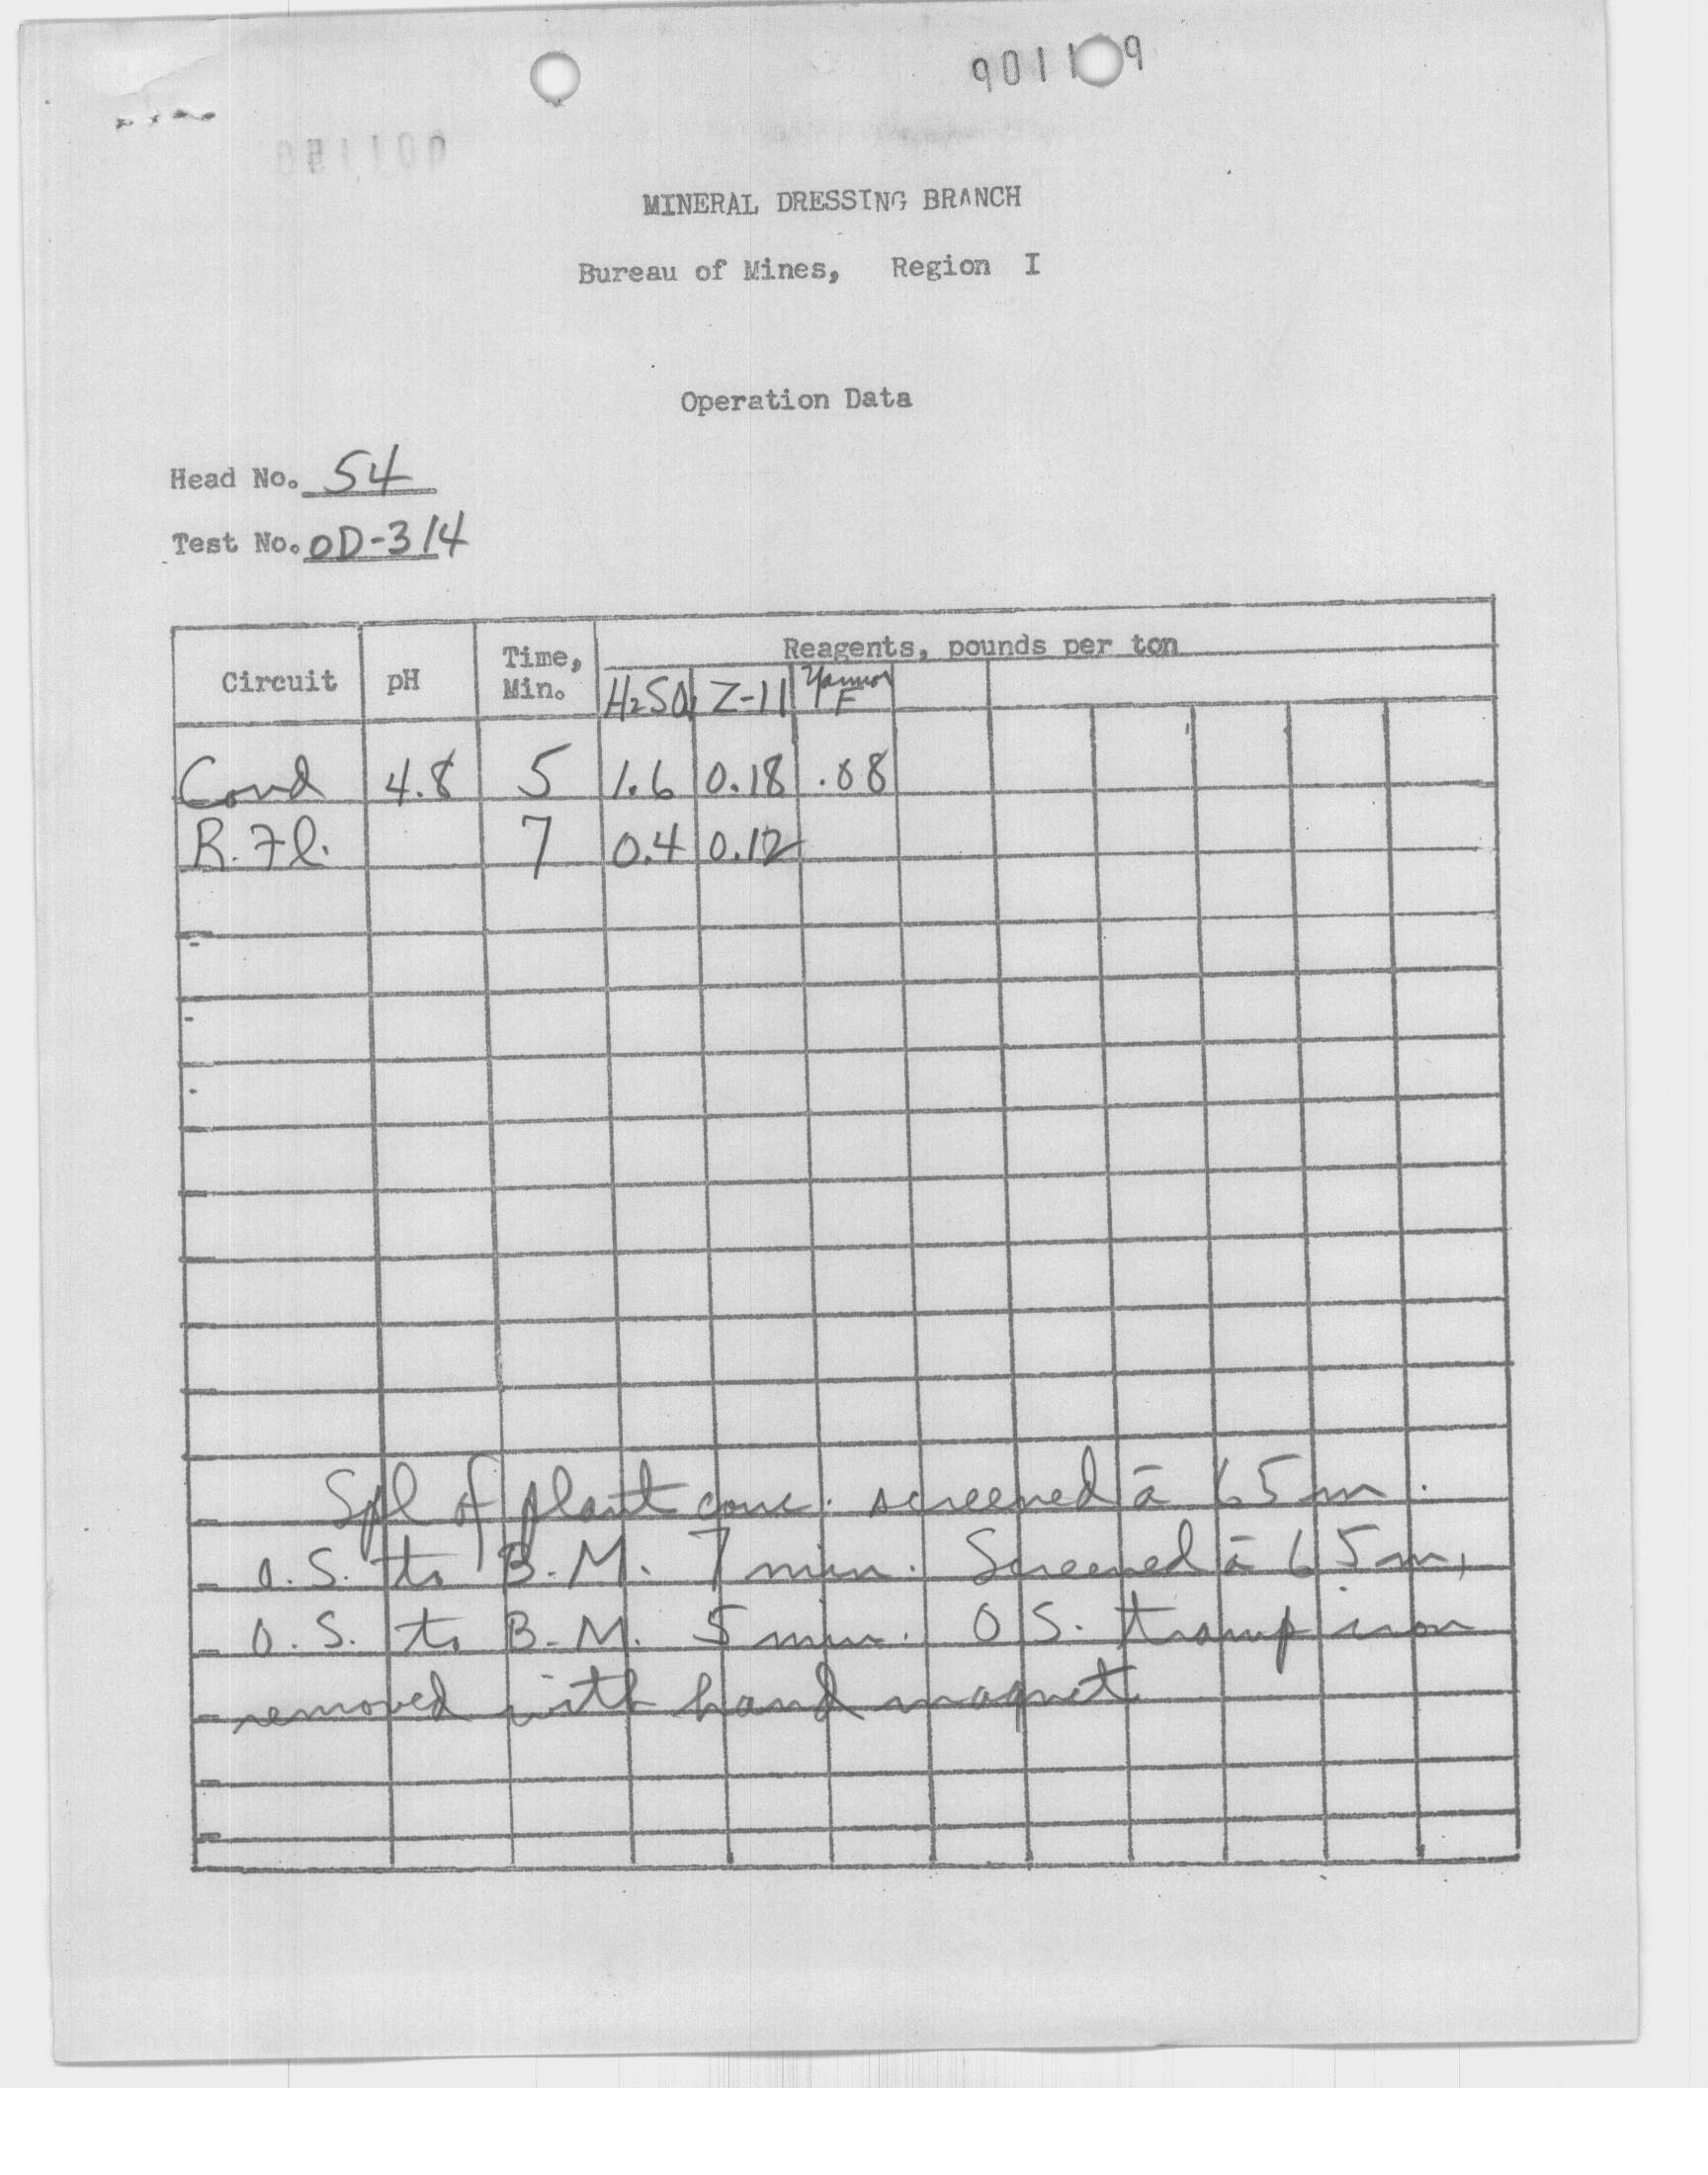 901109
MINERAL DRESSING BRANCH
Bureau of Mines, Region I
Operation Data
Head No. 54
Test No. OD-314
Circuit pH Time, Min. Reagents, pounds per ton
H2SO4 Z-11 Yarmor F
Cond 4.8 5 1.6 0.18 .08
R. Fl. 7 0.4 0.12
Spl of plant conc. screened ā 65 m.
O.S. to B.M. 7 min. Screened ā 65 m,
O.S. to B.M. 5 min. O S. tramp iron
removed with hand magnet